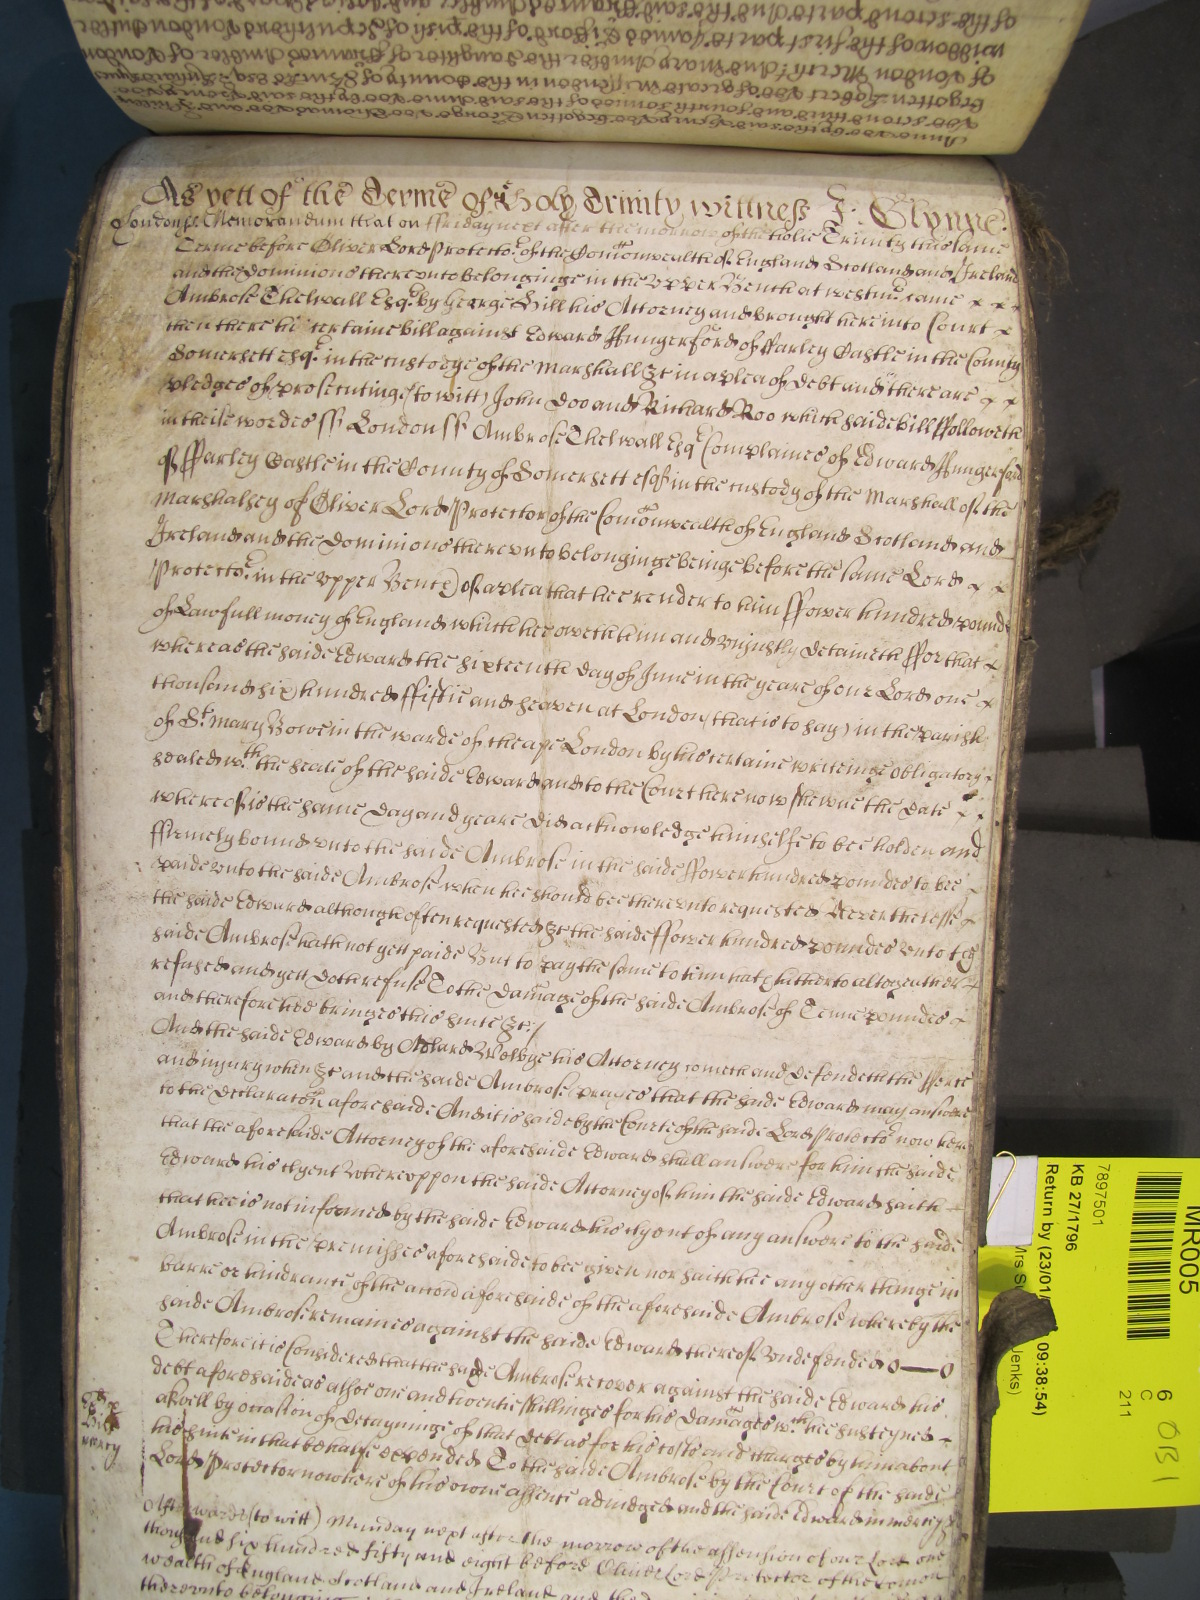 As yett of the Terme of Holy Trinity wittness J: Glynne:
London ss Memorandum that on ffriday next after the morrow of the holie Trinity this same
Terme before Oliver Lord Protector of the Comonwealth of England Scotland and Ireland
and the Dominions thereunto belonginge in the Upper Bench at westmr came
Ambrose Thelwall Esqr by George Hill his Attorney and brought here into Court
then there his certaine bill against Edward Hungerford of ffarley Castle in the County
Somersett esqr in the custodye of the Marshall &c in a plea of debt and there are
pledges of prosecuting (to witt) John Doo and Richard Roo which saide bill ffolloweth
in theise wordes ss London ss Ambrose Thelwall Esqr Complaines of Edward Hungerford
of ffarley Castle in the County of Somersett esqr in the custody of the Marshall of the
Marshalsey of Oliver Lord Protector of the Comonwealth of England Scotland and
Ireland and the Dominions thereunto belonginge beinge before the same Lord
Protector in the Upper Bench of a plea that hee render to him ffower hundred pounds
of Lawfull money of England which hee oweth him and unjustly detaineth ffor that
whereas the saide Edward the sixteenth day of June in the yeare of our Lord one
thousand six hundred ffiftie and seaven at London (that is to say) in the parish
of St Mary Bowe in the warde of Cheape London by his certaine writeinge obligatory
sealed wth the seale of the saide Edward and to the Court here now shewne the date
whereof is the same day and yeare did acknowledge himselfe to bee holden and
ffirmely bound unto the saide Ambrose in the saide ffower hundred poundes to bee
paide unto the saide Ambrose when hee should bee thereunto requested Neverthelesse
the saide Edward although often requested &c the saide ffower hundred poundes unto the
saide Ambrose hath not yett paide But to pay the same to him hath hitherto altogeather
refused and yett doth refuse To the damage of the saide Ambrose of Tenne poundes
and therefore hee bringes this suite &c
And the saide Edward by his Attorney cometh and defendeth the fforce
and injury when &c and the saide Ambrose prayes that the saide Edward may answere
to the declaration aforesaide And it is saide by the Courte of the saide Lord Protector now here
that the aforesaide Attorney of the aforesaide Edward shall answere for him the saide
Edward his clyent Whereuppon the saide Attorney of him the saide Edward saith
that hee is not informed by the saide Edward his clyent of any answere to the saide
Ambrose in the premisses aforesaide to bee given nor saith hee any other thinge in
barre or hindrance of the accon aforesaide of the aforesaide Ambrose whereby the
saide Ambrose remaines against the saide Edward thereof Undefended
Therefore it is Considered that the saide Ambrose recover against the saide Edward his
debt aforesaide as alsoe one and twentie shillinges for his damages wch hee susteyned
aswell by occasion of detayninge of that debt as for his costs and charges by him about
his suite in that behalfe expended To the saide Ambrose by the Court of the saide
Lord Protector now here of his owne assente adiudged and the saide Edward in mercy &c
Afterwards (to witt) Munday next after the morrow of the assension of our Lord one
thousand six hundred fifty and eight before Oliver Lord Protector of the comon
wealth of England Scotland and Ireland and the
thereunto belonging
mercy
MR005
7897501
KB 27/1796
Return by (23/01/
09:38:54)
Jenks)
6
C
211